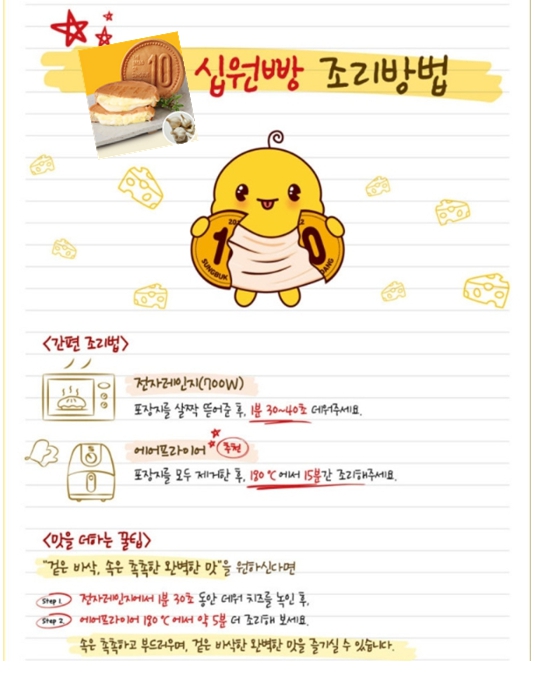 십원빵 조리방법
10
1 0
SUNGBUK
<간편 조리법>
전자레인지(700W)
포장지를 살짝 뜯어준 후, 1분 30~40초 데워주세요.
에어프라이어 추천
포장지를 모두 제거한 후, 180℃에서 15분간 조리해주세요.
<맛을 더하는 꿀팁>
"겉은 바삭, 속은 촉촉한 완벽한 맛"을 원하신다면
Step 1. 전자레인지에서 1분 30초 동안 데워 치즈를 녹인 후,
Step 2. 에어프라이어 180℃에서 약 5분 더 조리해 보세요.
속은 촉촉하고 부드러우며, 겉은 바삭한 완벽한 맛을 즐기실 수 있습니다.